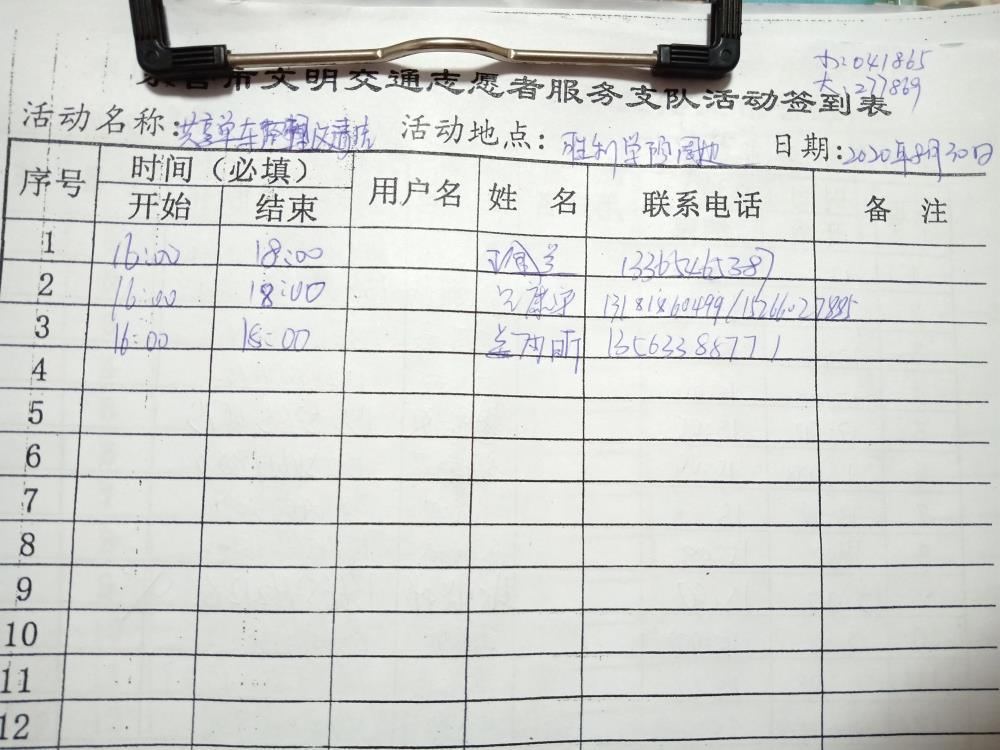 小:041865
大:277869
东营市文明交通志愿者服务支队活动签到表
活动名称:共享单车整理及清洁 活动地点:胜利学院周边 日期:2020年8月30日
序号 时间（必填） 用户名 姓 名 联系电话 备 注
开始 结束
1 16:00 18:00 13365465387
2 16:00 18:00 13181860499/15266027885
3 16:00 18:00 13563388771
4
5
6
7
8
9
10
11
12